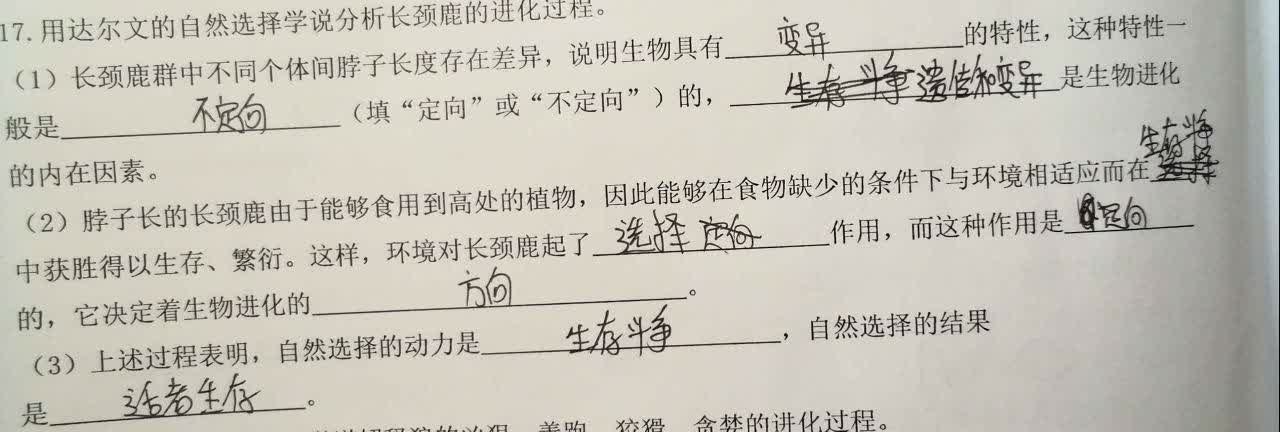 17.用达尔文的自然选择学说分析长颈鹿的进化过程。
（1）长颈鹿群中不同个体间脖子长度存在差异，说明生物具有 变异 的特性，这种特性一
般是 不定向 （填“定向”或“不定向”）的， 生存斗争 遗传和变异 是生物进化
的内在因素。
生存斗争
（2）脖子长的长颈鹿由于能够食用到高处的植物，因此能够在食物缺少的条件下与环境相适应而在
中获胜得以生存、繁衍。这样，环境对长颈鹿起了 选择 定向 作用，而这种作用是 定向
的，它决定着生物进化的 方向 。
（3）上述过程表明，自然选择的动力是 生存斗争 ，自然选择的结果
是 适者生存 。
善跑 狡猾 贪婪的进化过程。